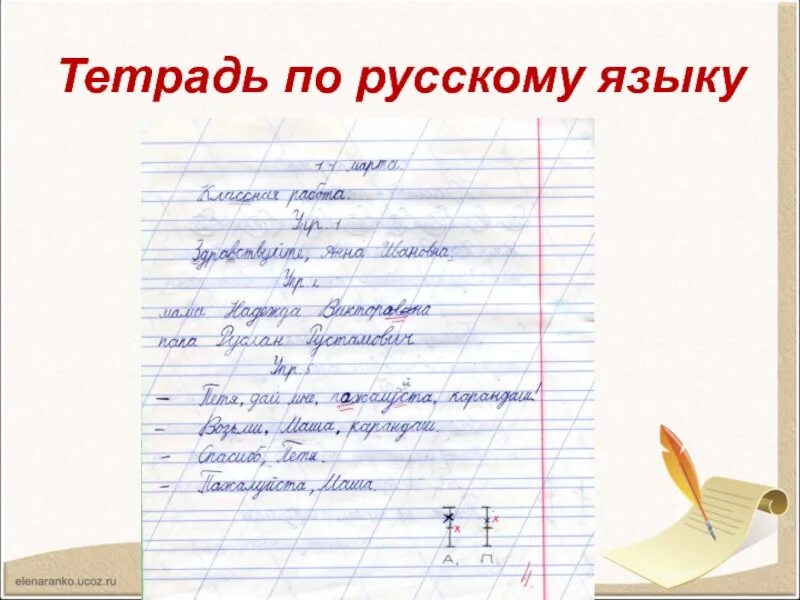 Тетрадь по русскому языку
11 марта.
Классная работа.
Упр. 1
Здравствуйте, Анна Ивановна.
Упр. 2
мама Надежда Викторовна
папа Руслан Рустамович
Упр. 5
– Петя, дай мне, пажалуйста, карандаш!
– Возьми, Маша, карандаш.
– Спасибо, Петя.
– Пажалуйста, Маша.
А. П.
4.
elenaranko.ucoz.ru